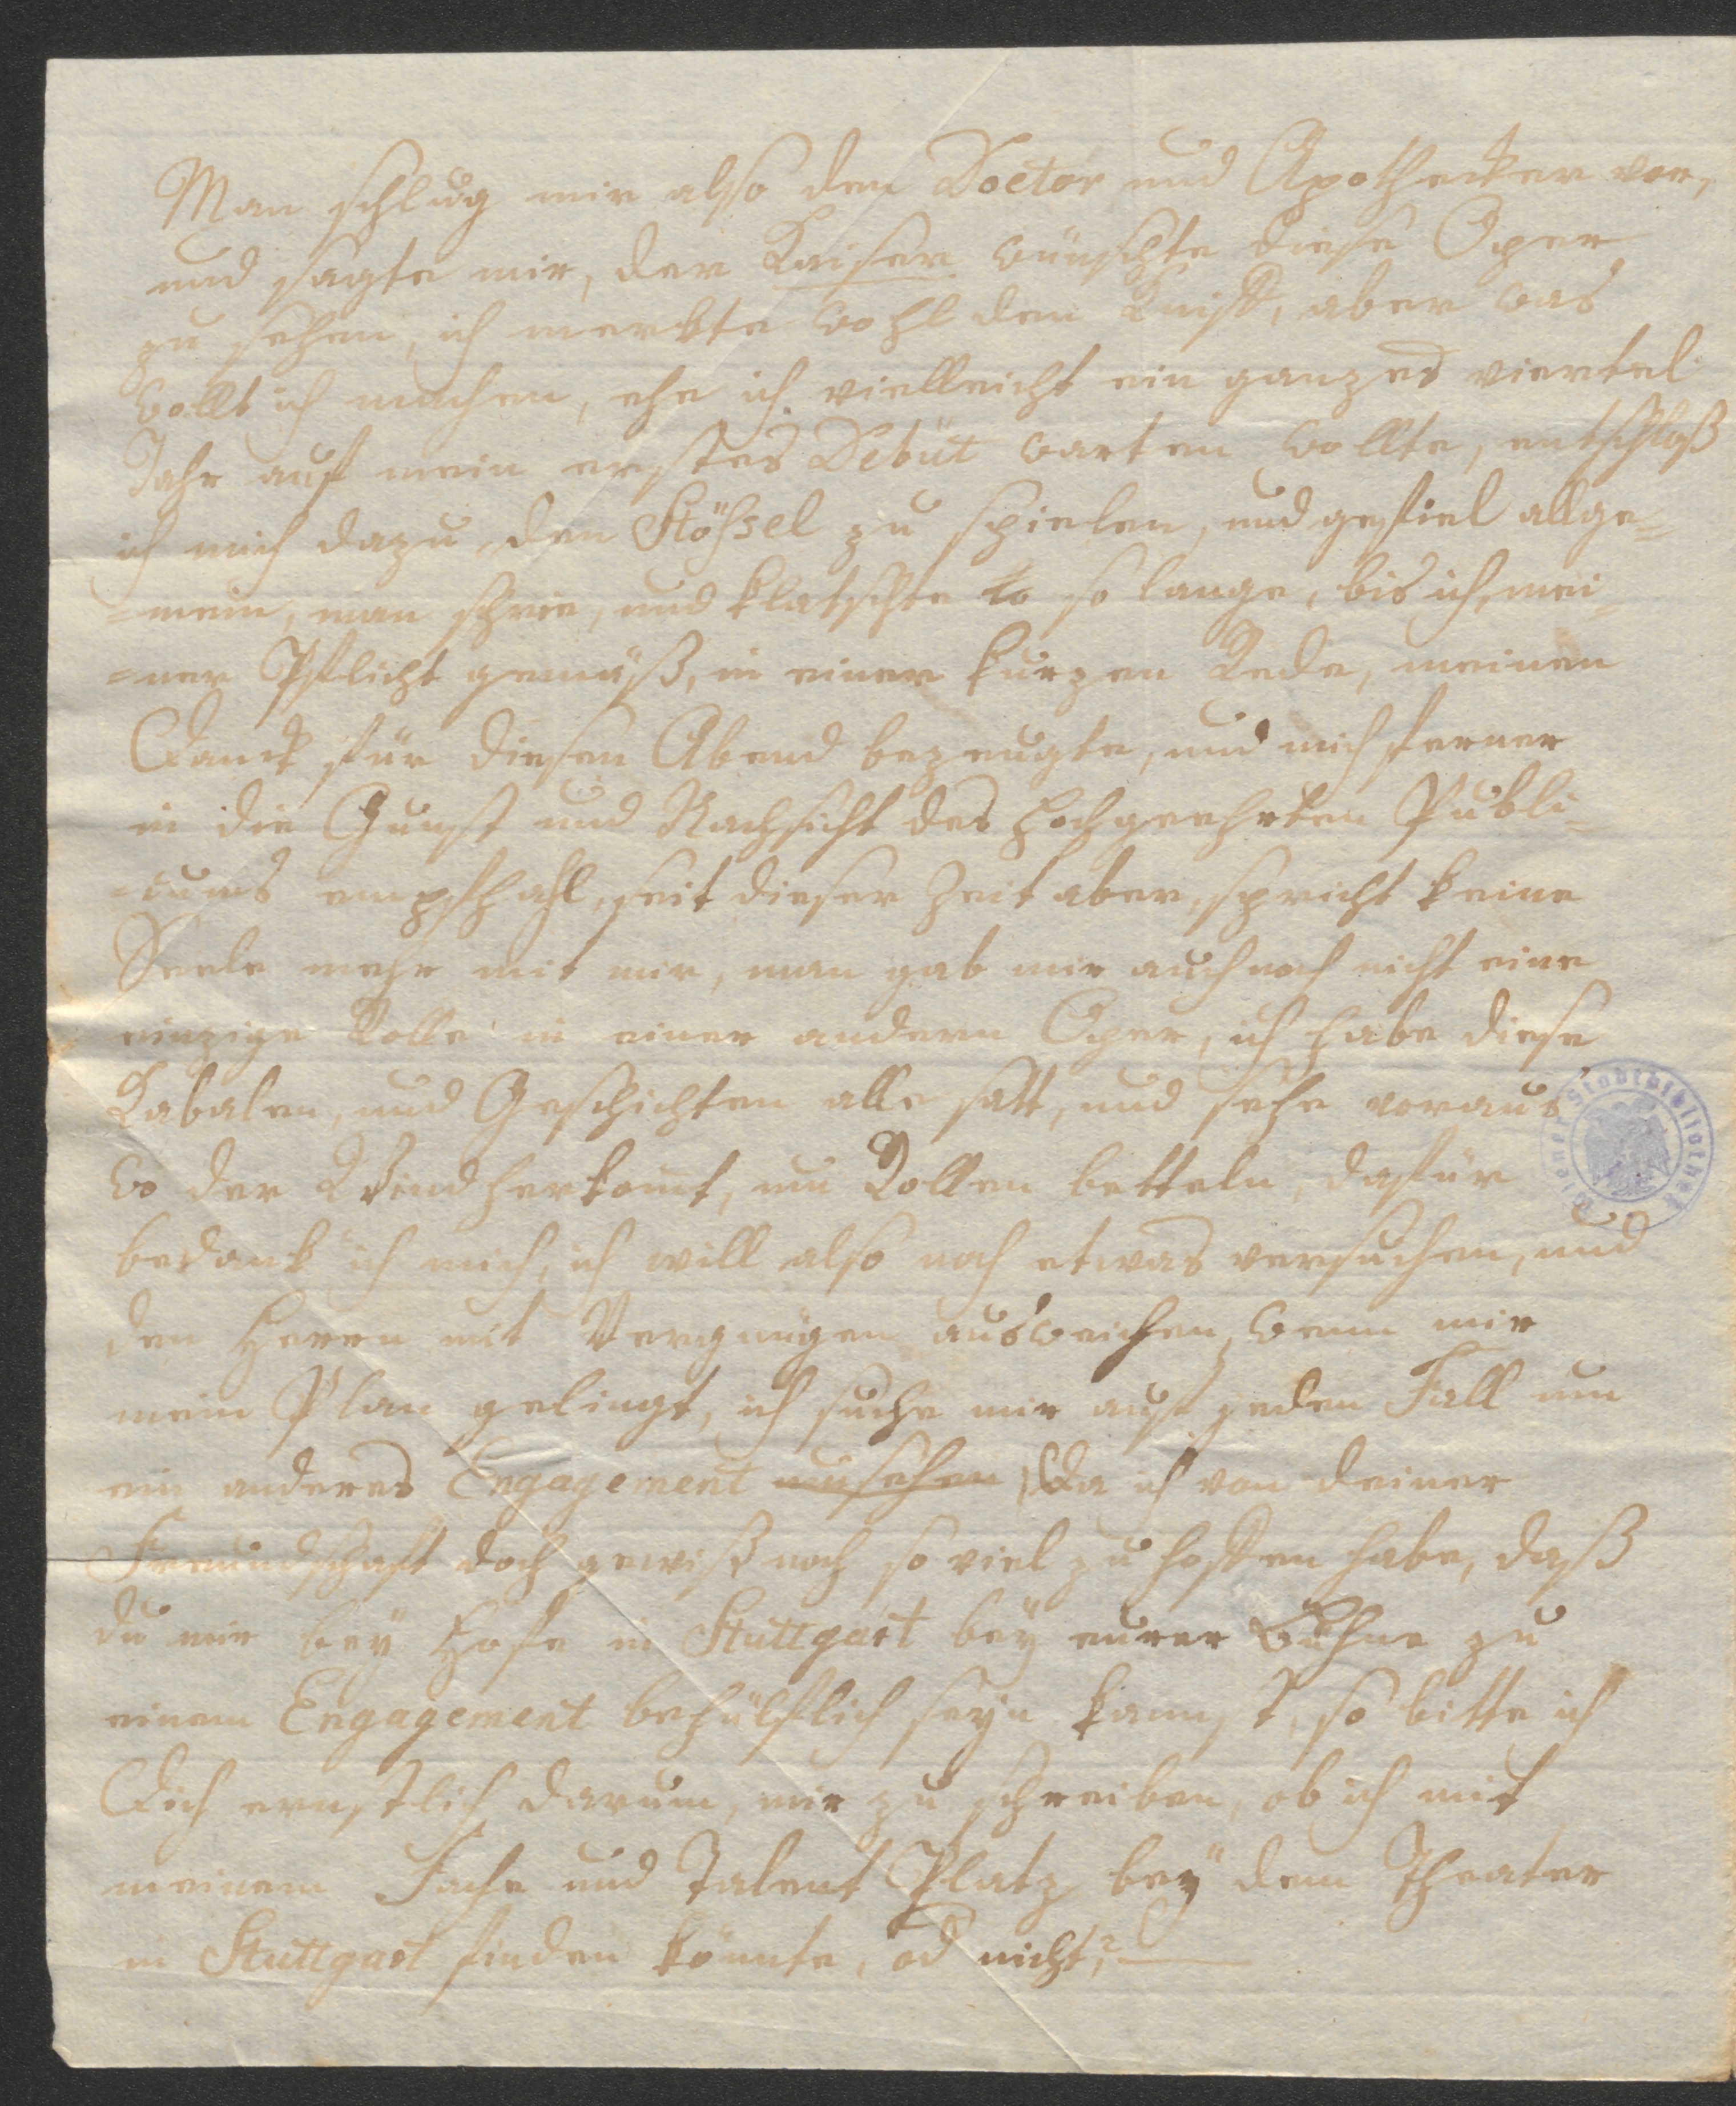 Man schlug mir also den Doctor und Apothecker vor,
und sagte mir, der Kaiser wünschte diese Oper
zu sehen, ich merkte wohl den Kniff, aber was
wollt ich machen, ehe ich vielleicht ein ganzes viertel
Jahr auf mein erstes Debüt warten wollte, entschloß
ich mich dazu, den Stößsel zu spielen, und gefiel allge=
=mein, man schrie, und klatschte so lange, bis ich, mei=
=ner Pflicht gemäß, in einer kurzen Rede, meinen
Danck für diesen Abend bezeugte, und mich ferner
in die Gunst und Nachsicht des hochgeehrten Publi=
=cums empfhahl, seit dieser Zeit aber, spricht keine
Seele mehr mit mir, man gab mir auch noch nicht eine
einzige Rolle in einer andern Oper, ich habe diese
Kabalen, und Geschichten alle satt, und sehe voraus
wo der Wind herkomt, um Rollen betteln, dafür
bedank ich mich, ich will also noch etwas versuchen, und
den Herrn mit Vergnügen ausweichen, wenn mir
mein Plan gelingt, ich suche mir auf jeden Fall um
ein anderes Engagement umsehen, Da ich von deiner
Freundschaft doch gewiß noch so viel zu hoffen habe, daß
du mir bey Hofe in Stuttgart bey eurer Bühne zu
einem Engagement behülflich seyn kannst, so bitte ich
Dich ernstlich darum, mir zu schreiben, ob ich mit
meinem Fache und Talent Platz bey dem Theater
in Stuttgart finden könnte, od nicht,?
Wiener Stadtbibliothek